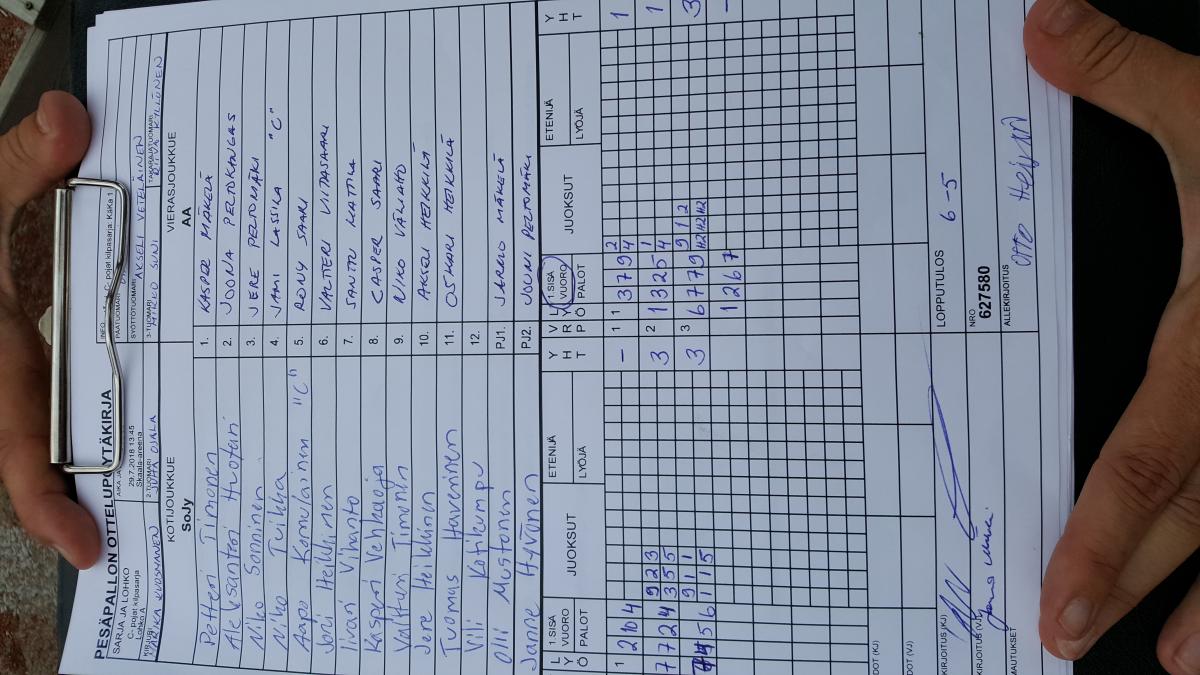 PESÄPALLON OTTELUPÖYTÄKIRJA
SARJA JA LOHKO
C- pojat kilpasarja
Lohko A
29.7.2018 13:45
Skaala-areena
C- pojat kilpasarja: KäKä 1
KIRJURI
2-TUOMARI
JUHA OJALA
PÄÄTUOMARI
SYÖTTÖTUOMARI
AKSELI VETELÄINEN
3-TUOMARI
MIKKO SUNI
TAKARAJATUOMARI
KOTIJOUKKUE
SoJy
VIERASJOUKKUE
AA
Petteri Timonen 1. KASPER MÄKELÄ
Aleksanteri Huotari 2. JOONA PELTOKANGAS
Niko Sonninen 3. JERE PELTOMÄKI
Niko Tuikka 4. JANI LASSILA "C"
Aapo Komulainen "C" 5. RONY SAARI
Joni Heikkinen 6. VALTTERI VIITASAARI
Iivari Vihanto 7. SANTTU KATTILA
Kasperi Vehkaoja 8. CASPER SAARI
Valtteri Timonen 9. NIKO VÄLIAHO
Jere Heikkinen 10. AKSELI HEIKKILÄ
Tuomas Haverinen 11. OSKARI HEIKKILÄ
Vili Kotikumpu 12.
Olli Mustonen PJ1. JARMO MÄKELÄ
Janne Hyvönen PJ2. JOUNI PELTOMÄKI
1.SISÄ VUORO
PALOT
JUOKSUT
ETENIJÄ
LYÖJÄ
YHT
VRP
LYÖ
1.SISÄ VUORO
PALOT
JUOKSUT
ETENIJÄ
LYÖJÄ
YHT
1 2 10 4 – 1 1 3 7 9 2 4 1
7 7 2 4 9 2 3 3 5 5 3 2 1 3 2 5 1 4 1
4 5 6 9 1 1 1 1 5 3 3 6 7 7 9 9 1 2 H2 H2 H2 3
1 2 6 7 –
LOPPUTULOS 6-5
NRO
627580
ALLEKIRJOITUS
Otto